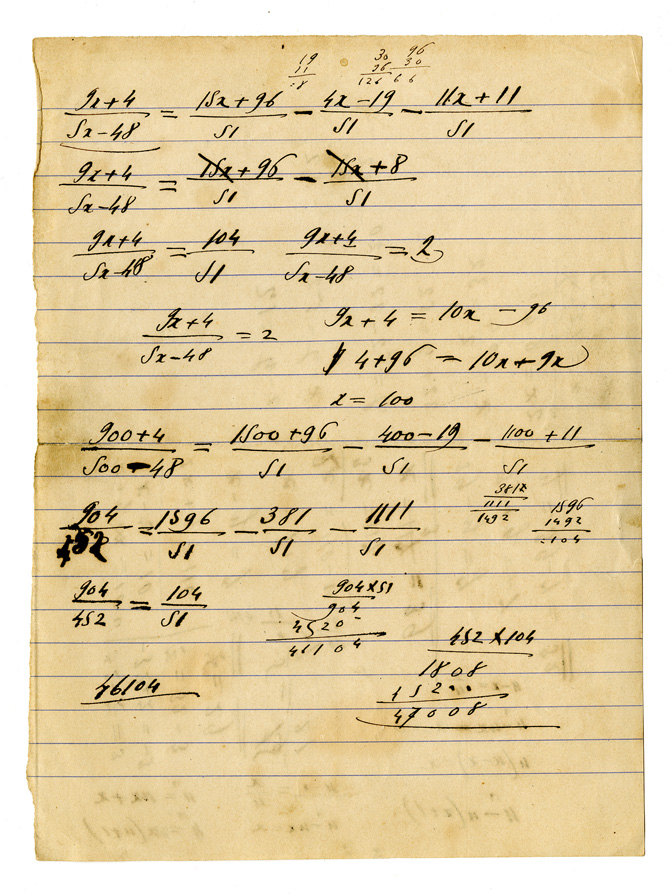 19 30 96
11 96 30
:8 126 66
9x+4/5x-48 = 15x+96/51 - 4x-19/51 - 11x+11/51
9x+4/5x-48 = 15x+96/51 - 15x+8/51
9x+4/5x-48 = 104/51 9x+4/5x-48 = 2
9x+4/5x-48 = 2 9x+4 = 10x - 96
4+96 = 10x+9x
x = 100
900+4/500-48 = 1500+96/51 - 400-19/51 - 1100+11/51
381
1111
1492
1596
1492
:104
904/452 = 1596/51 - 381/51 - 1111/51
904/452 = 104/51
904×51
904
4520-
46104
452×104
1808
452..
47008
46104